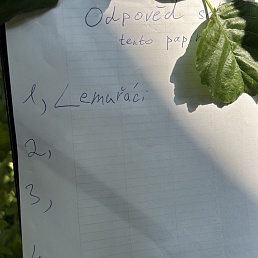 Odpověď s
tento pap
1, Lemuřáci
2,
3,